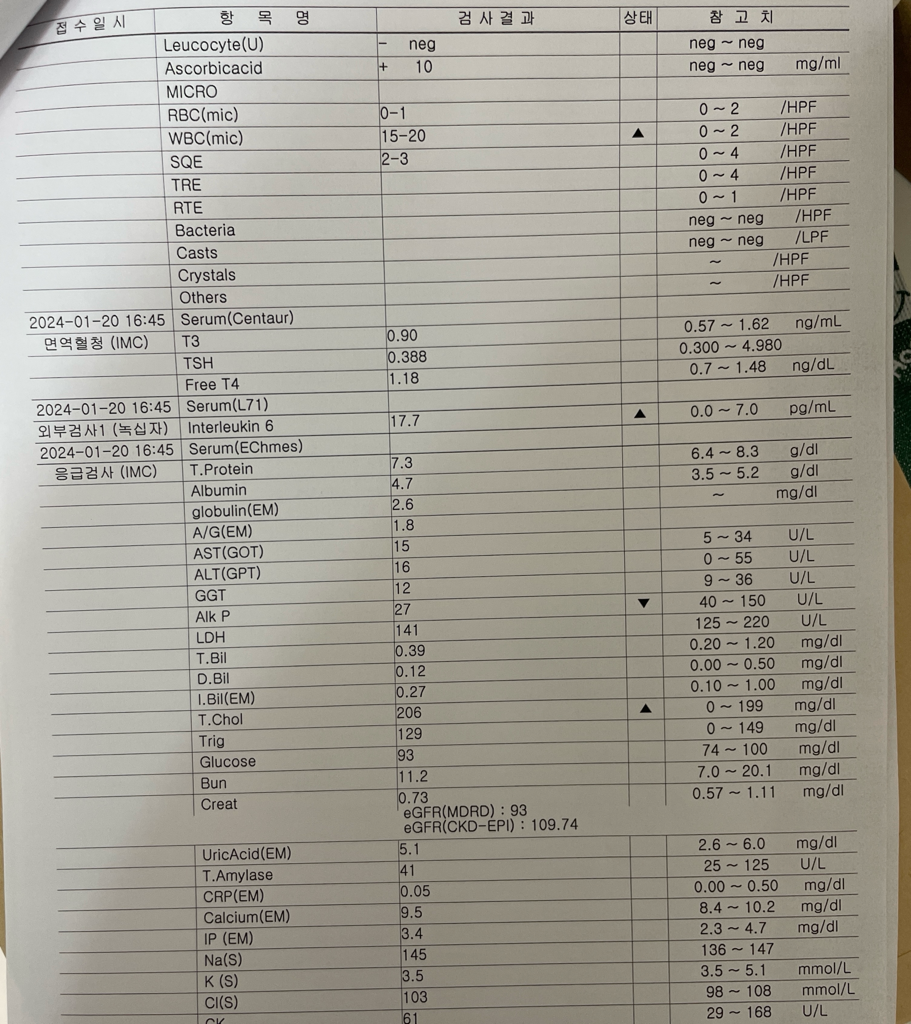 접수일시 항목명 검사결과 상태 참고치
Leucocyte(U) - neg neg ~ neg
Ascorbicacid + 10 neg ~ neg mg/ml
MICRO
RBC(mic) 0-1 0 ~ 2 /HPF
WBC(mic) 15-20 ▲ 0 ~ 2 /HPF
SQE 2-3 0 ~ 4 /HPF
TRE 0 ~ 4 /HPF
RTE 0 ~ 1 /HPF
Bacteria neg ~ neg /HPF
Casts neg ~ neg /LPF
Crystals ~ /HPF
Others ~ /HPF
2024-01-20 16:45 Serum(Centaur)
면역혈청 (IMC) T3 0.90 0.57 ~ 1.62 ng/mL
TSH 0.388 0.300 ~ 4.980
Free T4 1.18 0.7 ~ 1.48 ng/dL
2024-01-20 16:45 Serum(L71)
외부검사1 (녹십자) Interleukin 6 17.7 ▲ 0.0 ~ 7.0 pg/mL
2024-01-20 16:45 Serum(EChmes)
응급검사 (IMC) T.Protein 7.3 6.4 ~ 8.3 g/dl
Albumin 4.7 3.5 ~ 5.2 g/dl
globulin(EM) 2.6 ~ mg/dl
A/G(EM) 1.8
AST(GOT) 15 5 ~ 34 U/L
ALT(GPT) 16 0 ~ 55 U/L
GGT 12 9 ~ 36 U/L
Alk P 27 ▼ 40 ~ 150 U/L
LDH 141 125 ~ 220 U/L
T.Bil 0.39 0.20 ~ 1.20 mg/dl
D.Bil 0.12 0.00 ~ 0.50 mg/dl
I.Bil(EM) 0.27 0.10 ~ 1.00 mg/dl
T.Chol 206 ▲ 0 ~ 199 mg/dl
Trig 129 0 ~ 149 mg/dl
Glucose 93 74 ~ 100 mg/dl
Bun 11.2 7.0 ~ 20.1 mg/dl
Creat 0.73 0.57 ~ 1.11 mg/dl
eGFR(MDRD) : 93
eGFR(CKD-EPI) : 109.74
UricAcid(EM) 5.1 2.6 ~ 6.0 mg/dl
T.Amylase 41 25 ~ 125 U/L
CRP(EM) 0.05 0.00 ~ 0.50 mg/dl
Calcium(EM) 9.5 8.4 ~ 10.2 mg/dl
IP (EM) 3.4 2.3 ~ 4.7 mg/dl
Na(S) 145 136 ~ 147
K (S) 3.5 3.5 ~ 5.1 mmol/L
Cl(S) 103 98 ~ 108 mmol/L
CK 61 29 ~ 168 U/L